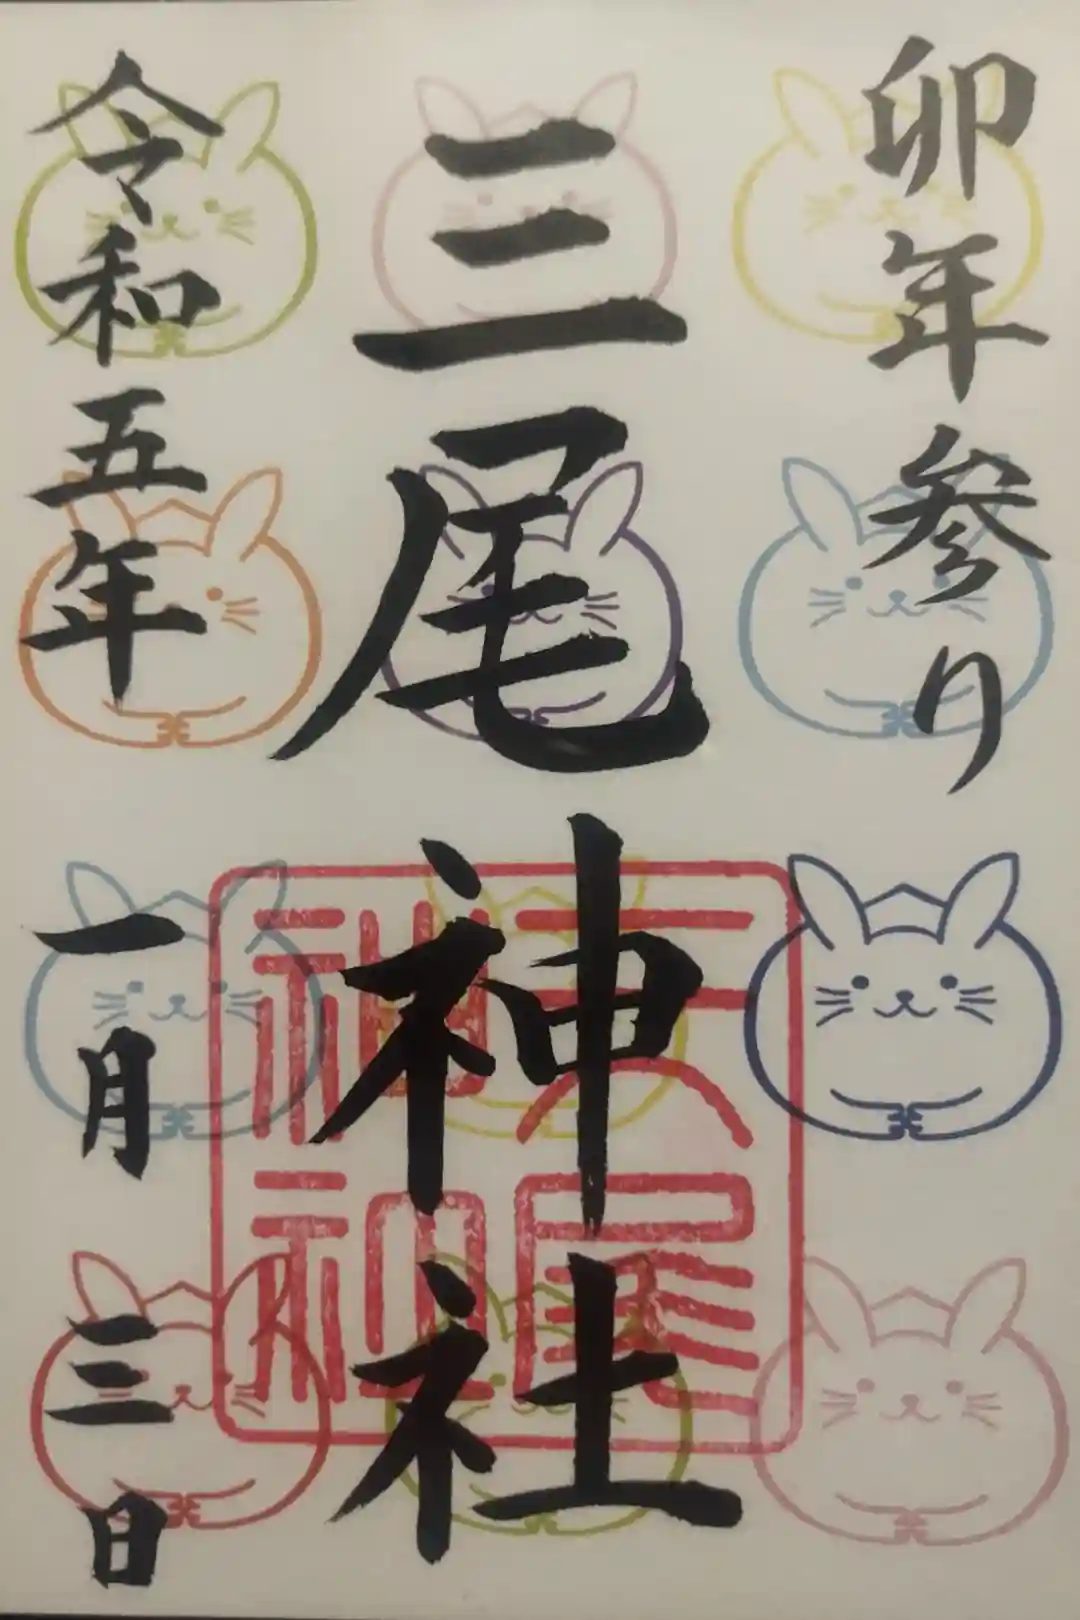 卯年参り
三尾神社
令和五年一月三日
三尾神社